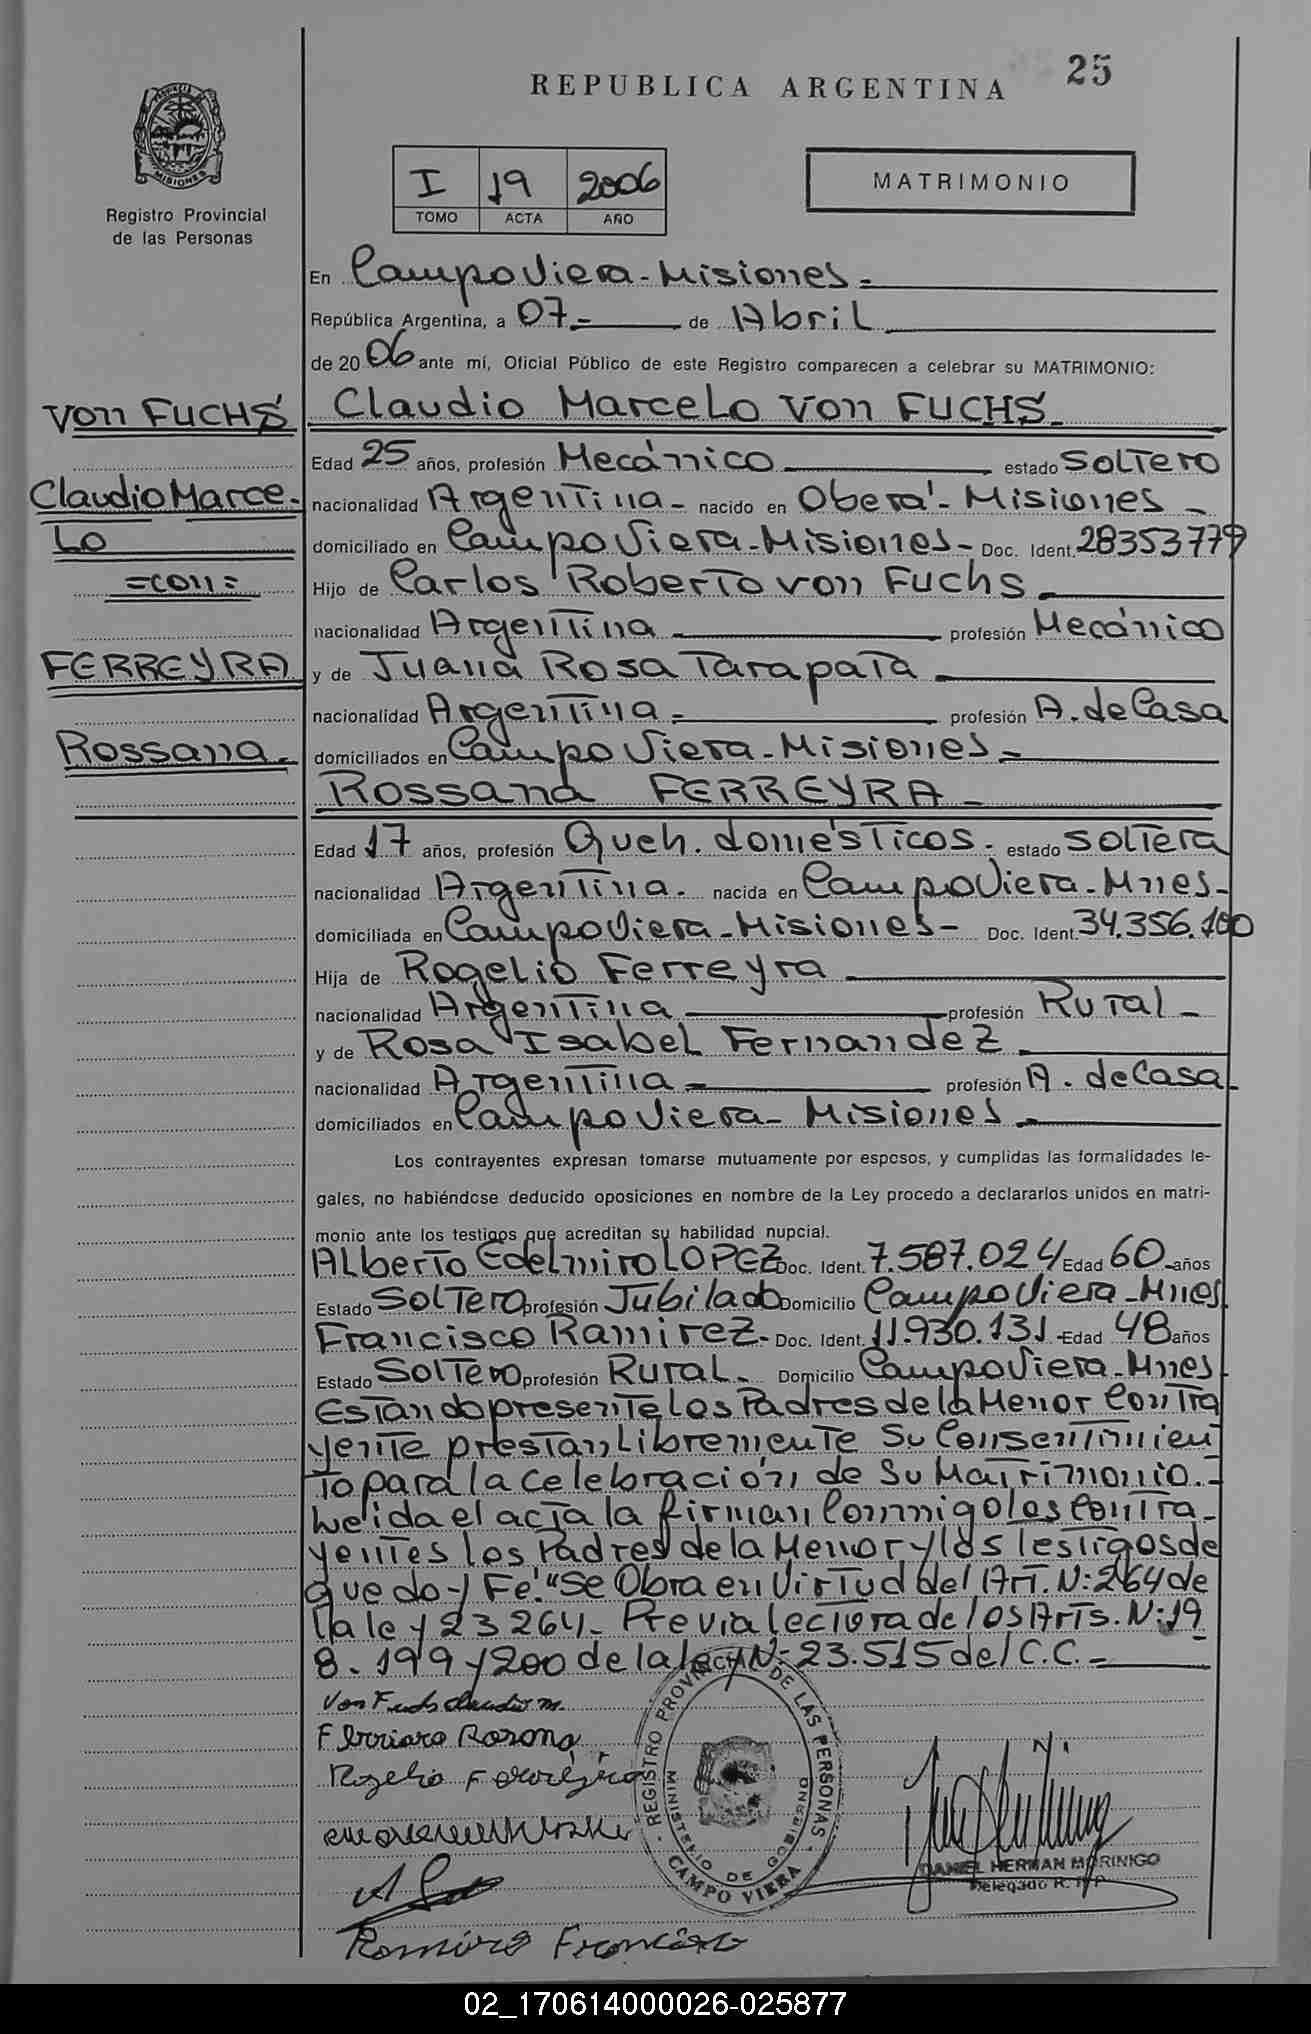 25
REPUBLICA ARGENTINA
MISIONES
Registro Provincial
de las Personas
I 19 2006
TOMO ACTA AÑO
MATRIMONIO
En Campo Viera - Misiones =
República Argentina, a 07 = de Abril
de 2006 ante mí, Oficial Público de este Registro comparecen a celebrar su MATRIMONIO:
Von FUCHS
Claudio Marce-
Lo
= con =
FERREYRA
Rossana.
Claudio Marcelo Von FUCHS
Edad 25 años, profesión Mecánico estado Soltero
nacionalidad Argentina - nacido en Oberá - Misiones -
domiciliado en Campo Viera - Misiones - Doc. Ident. 28353779
Hijo de Carlos Roberto von Fuchs
nacionalidad Argentina profesión Mecánico
y de Juana Rosa Tarapata
nacionalidad Argentina = profesión A. de Casa
domiciliados en Campo Viera - Misiones -
Rossana FERREYRA -
Edad 17 años, profesión Queh. domésticos. estado Soltera
nacionalidad Argentina. nacida en Campo Viera - Mnes -
domiciliada en Campo Viera - Misiones - Doc. Ident. 34.356.100
Hija de Rogelio Ferreyra
nacionalidad Argentina profesión Rural -
y de Rosa Isabel Fernandez
nacionalidad Argentina - profesión A. de Casa
domiciliados en Campo Viera - Misiones -
Los contrayentes expresan tomarse mutuamente por esposos, y cumplidas las formalidades le-
gales, no habiéndose deducido oposiciones en nombre de la Ley procedo a declararlos unidos en matri-
monio ante los testigos que acreditan su habilidad nupcial.
Alberto Edelmiro LOPEZ Doc. Ident. 7.587.024 Edad 60 años
Estado Soltero profesión Jubilado Domicilio Campo Viera - Mnes
Francisco Ramirez - Doc. Ident. 11.930.131 - Edad 48 años
Estado Soltero profesión Rural - Domicilio Campo Viera - Mnes.
Estando presente los Padres de la Menor Contra
yente prestan libremente su Consentimien
to para la celebración de su Matrimonio. -
Leida el acta la firman Conmigo los Contra-
yentes los Padres de la Menor y los testigos de
que doy Fe. "Se Obra en Virtud del Art. N: 264 de
la ley 23264 - Previa lectura de los Arts. N: 19
8. 199 y 200 de la ley N: 23.515 del C.C. -
Von Fuchs Claudio M.
Rogelio
Ramirez Francisco
REGISTRO PROVINCIAL DE LAS PERSONAS
MINISTERIO DE GOBIERNO
CAMPO VIERA
DANIEL HERNAN MORINIGO
Delegado R. P. P.
02_170614000026-025877